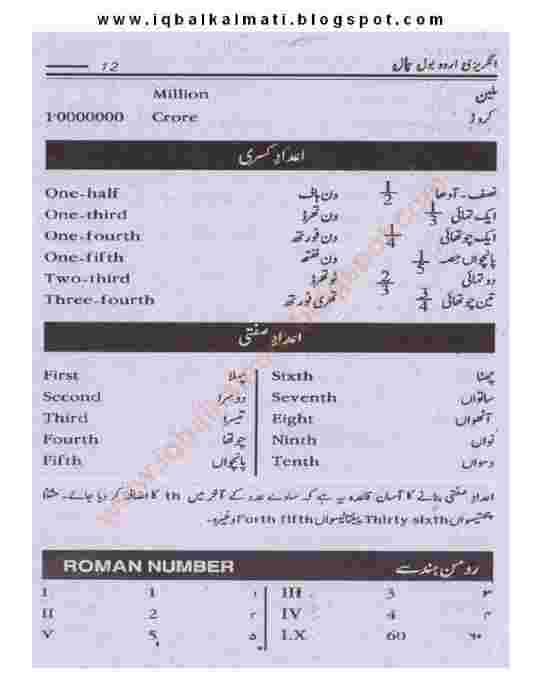 www.iqbalkalmati.blogspot.com
12 انگریزی اردو بول چال
Million ملین
1'0000000 Crore کروڑ
اعداد کسری
One-half ون ہاف 1/2 نصف۔آدھا
One-third ون تھرڈ 1/3 ایک تہائی
One-fourth ون فورتھ 1/4 ایک چوتھائی
One-fifth ون ففتھ 1/5 پانچواں حصہ
Two-third ٹو تھرڈ 2/3 دو تہائی
Three-fourth تھری فورتھ 3/4 تین چوتھائی
اعداد صفتی
First پہلا Sixth چھٹا
Second دوسرا Seventh ساتواں
Third تیسرا Eight آٹھواں
Fourth چوتھا Ninth نواں
Fifth پانچواں Tenth دسواں
اعداد صفتی بنانے کا آسان قاعدہ یہ ہے کہ سادے عدد کے آخر میں th کا اضافہ کر دیا جائے۔ مثلاً
چھتیسواں Thirty sixth پینتالیسواں Forth fifth وغیرہ۔
ROMAN NUMBER رومن ہندسے
I 1 ۱ III 3 ۳
II 2 ۲ IV 4 ۴
V 5 ۵ LX 60 ۶۰